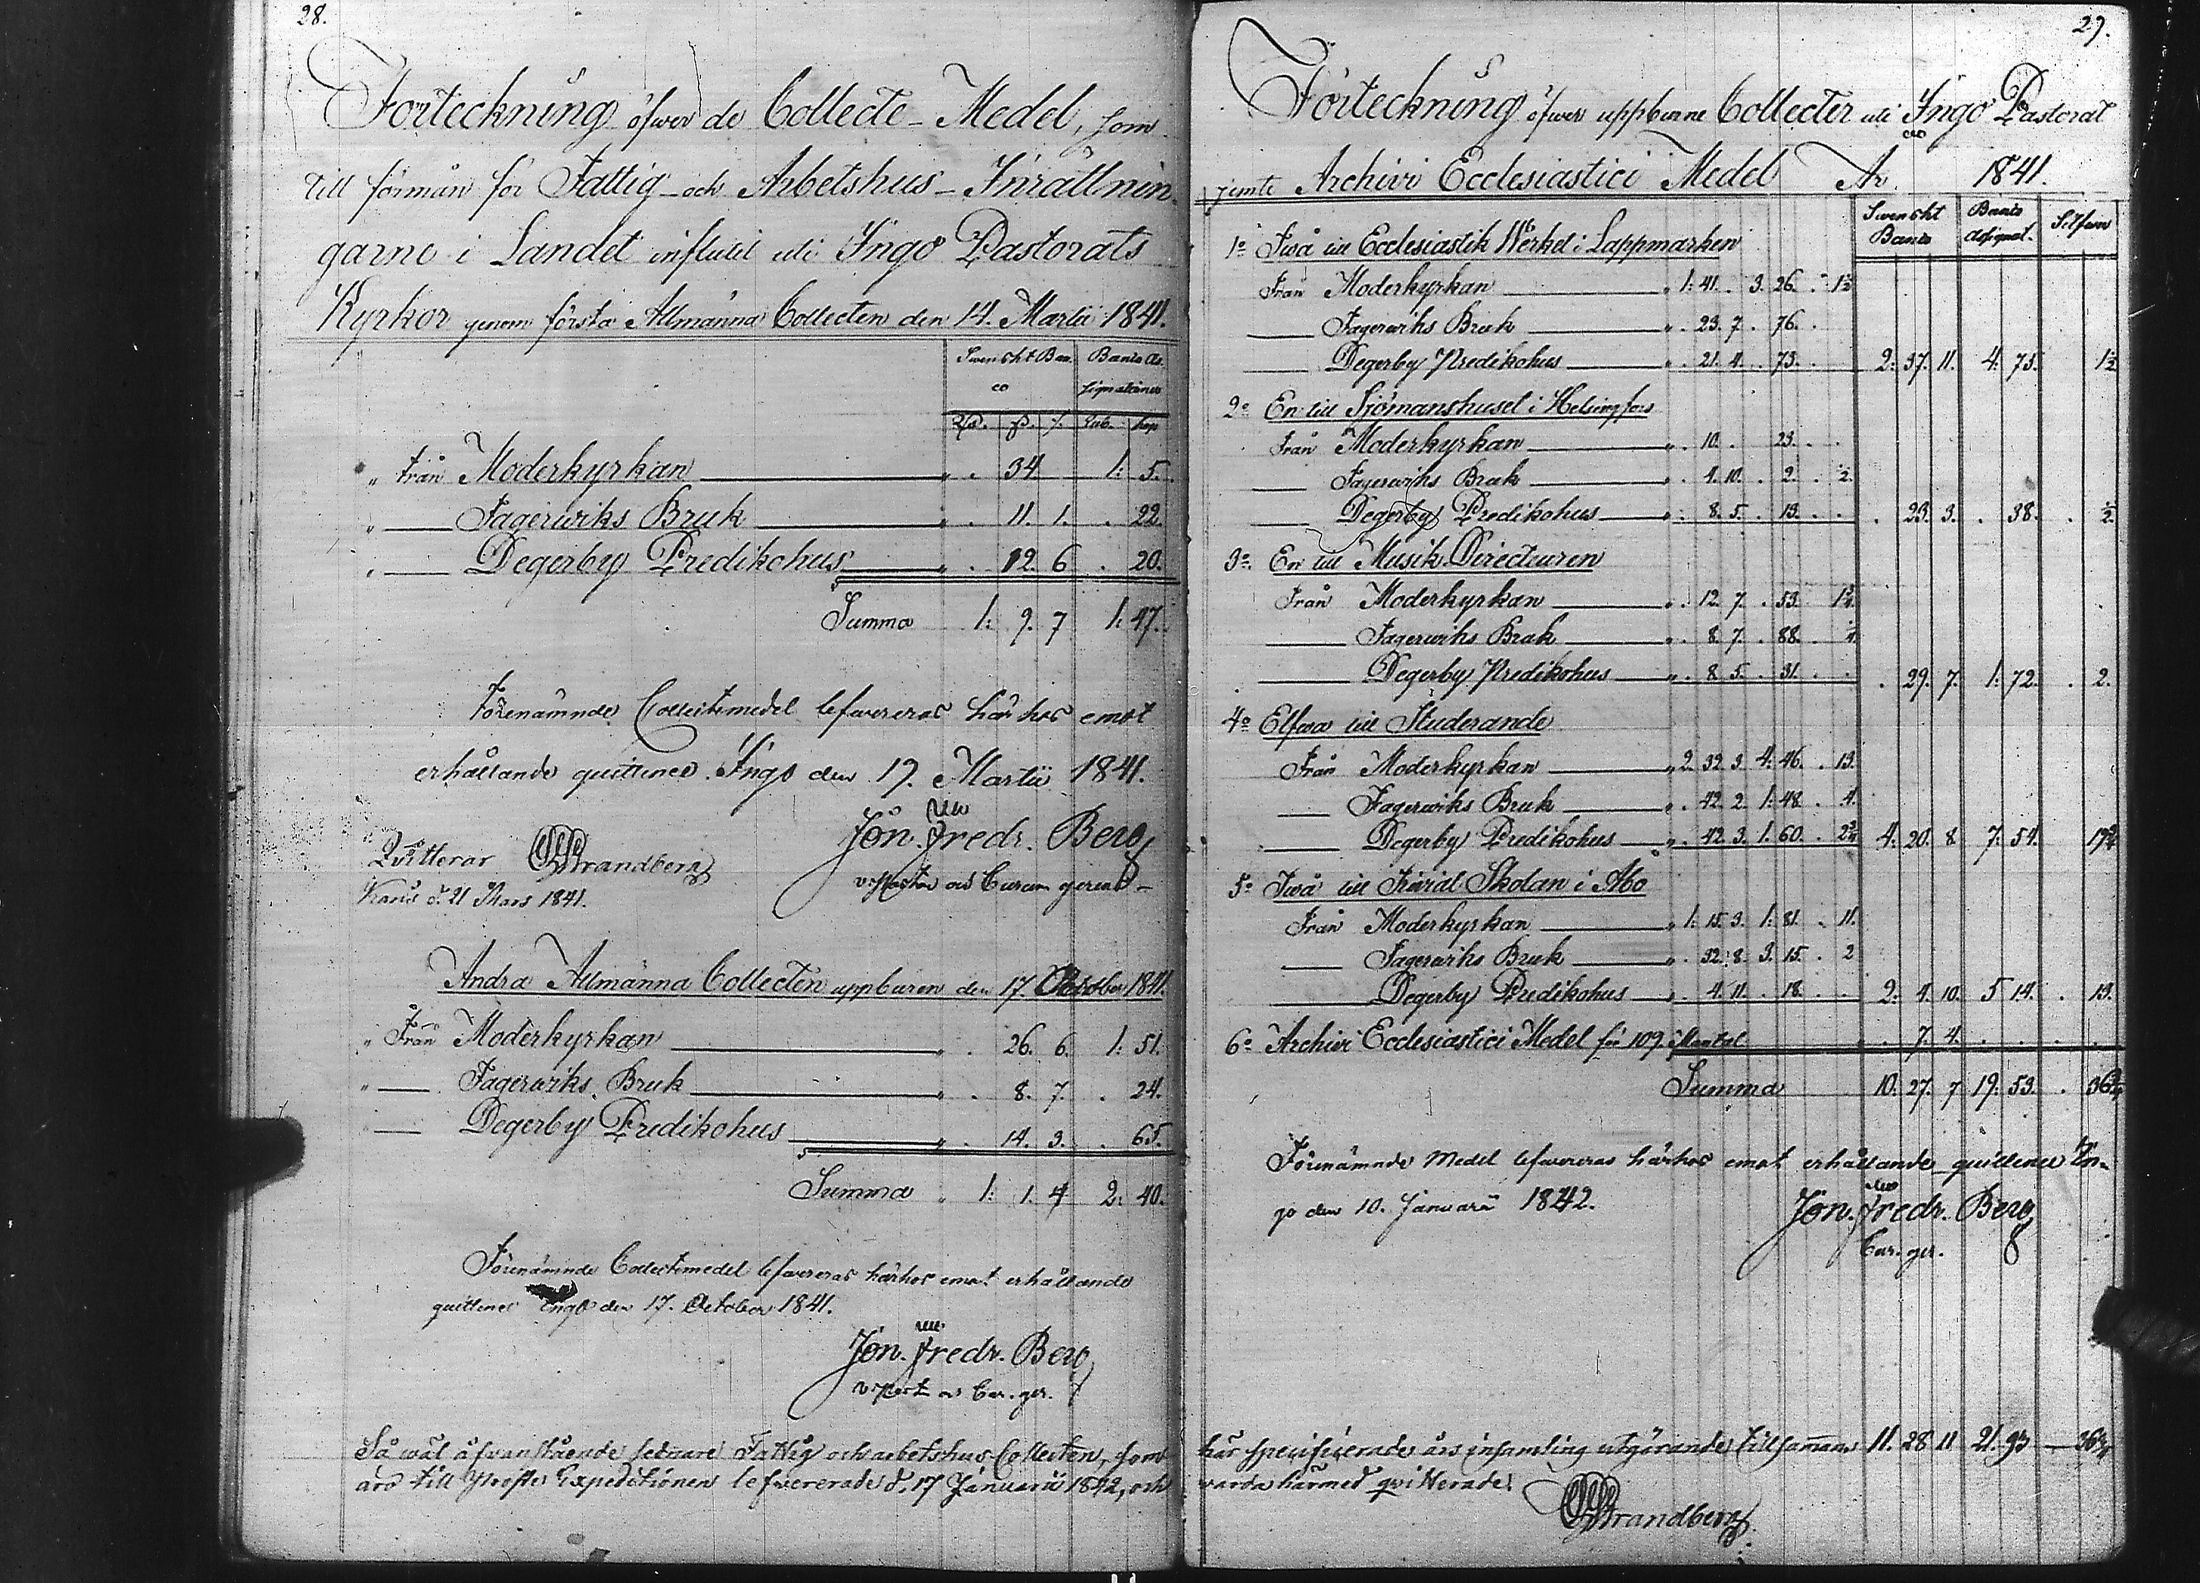 28.
Förteckning öfwer de Collecte-Medel, som
till förmån för Fattig- och Arbetshus-Inrättnin-
garne i Landet influtit uti Ingo Pastorats
Kyrkor genom första Allmänna Collecten den 14. Martii 1841.
Swenskt Ban- Banco As-
co signationer
Rd. ß. r. Rub. kop
„ från Moderkyrkan „ . 34. 1: 5.
„ — Fagerwiks Bruk „ . 11. 1. . 22.
„ — Degerby Predikohus „ . 12 6 . 20.
Summa 1: 9. 7 1: 47.
Förenämnde Collectemedel lefwereras härhos emot
erhållande quittence. Ingo den 19. Martii 1841.
Jon. Fredr. Berg
v:Pastor och Curam gerens
Qvitterar Strandberg
Karis d. 21 Mars 1841.
Andra Allmänna Collecten uppburen den 17. October 1841.
„ Från Moderkyrkan „ . 26. 6. 1: 51.
„ — Fagerwiks Bruk „ . 8. 7. . 24.
— Degerby Predikohus „ . 14. 3. . 65.
Summa „ 1: 1. 4 2: 40.
Förenämnde Collectemedel lefwereras härhos emot erhållande
quittence Ingo den 17. October 1841.
Jon. Fredr. Berg
v:Past. och Cur. ger.
Så wäl åfwanstående sednare Fattig och arbetshus Collecten, som
äro till Probste Expeditionen lefwererade d. 17 Januarii 1842, och
29.
Förteckning öfwer uppburne Collecter uti Ingo Pastorat
jemte Archivi Ecclesiastici Medel År 1841.
Swenskt Banco Silfwer
Banco Assignat.
1o Twå till Ecclesiastik Werket i Lappmarken
Från Moderkyrkan „ 1: 41. . 3. 26. . 1½
— Fagerwiks Bruk „ . 23. 7. . 76. .
— Degerby Predikohus „ . 21. 4. . 73. . 2: 37. 11. 4: 75. 1½
2o En till Sjömanshuset i Helsingfors
Från Moderkyrkan „ . 10. . 23. . .
— Fagerwiks Bruk „ . 4. 10. . 2. . ½.
— Degerby Predikohus „ . 8. 5. . 13. . . . 23. 3. . 38. . ½.
3o En till Musik-Directeuren
Från Moderkyrkan „ . 12. 7. . 53. 1¾
— Fagerwiks Bruk „ . 8. 7. . 88. ¼
— Degerby Predikohus „ . 8. 5. . 31. . . . 29. 7. 1: 72. . 2.
4o Elfwa till Studerande
Från Moderkyrkan „ 2. 32. 3. 4: 46. . 13.
— Fagerwiks Bruk „ . 42. 2. 1: 48. . 4.
— Degerby Predikohus „ . 42. 3. 1: 60. . 2¾ 4: 20. 8. 7: 54. 19¾
5o Twå till Trivial Skolan i Åbo
Från Moderkyrkan „ 1: 15. 3. 1: 81. . 11.
— Fagerwiks Bruk „ . 32. 8. 3. 15. . 2
— Degerby Predikohus „ . 4. 11. . 18. . . 2: 4. 10. 5 14. . 13.
6o Archivi Ecclesiastici Medel för 109 Mantal . 7. 4. . . .
Summa 10: 27. 7 19: 53. . 36¾
Förenämnde Medel lefwereras härhos emot erhållande quittence In-
go den 10. Januarii 1842. Jon. Fredr. Berg
Cur. ger.
här specificerade års insamling utgörande tillsammans 11. 28 11 21. 93 — 36¾
warda härmed qvitterade!
Strandberg